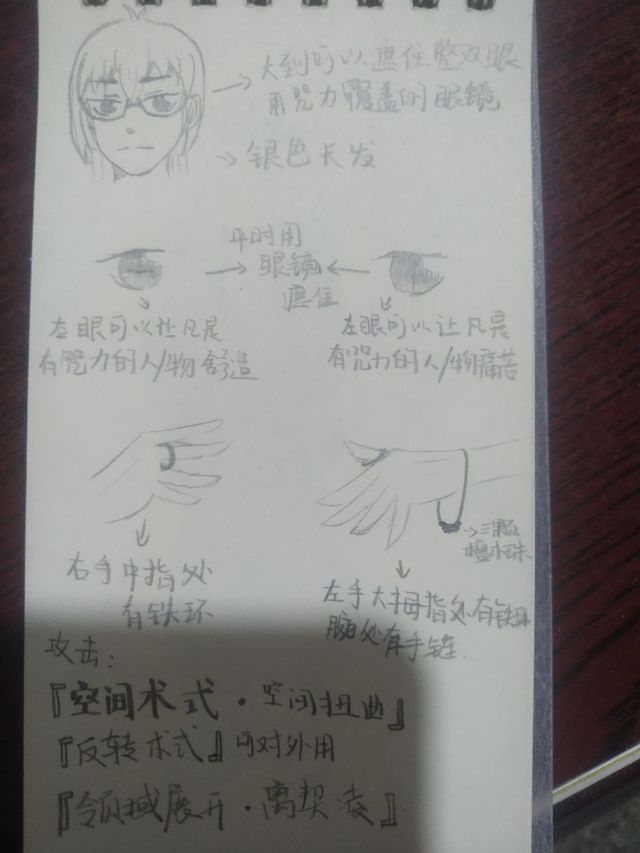 大到可以遮住整双眼
用咒力覆盖的眼镜
银色长发
平时用
眼镜
遮住
左眼可以让凡是
有咒力的人/物舒适
左眼可以让凡是
有咒力的人/物痛苦
右手中指处
有铁环
三颗
檀木珠
左手大拇指处有铁环
腕处有手链
攻击：
『空间术式·空间扭曲』
『反转术式』可对外用
『领域展开·离契凌』